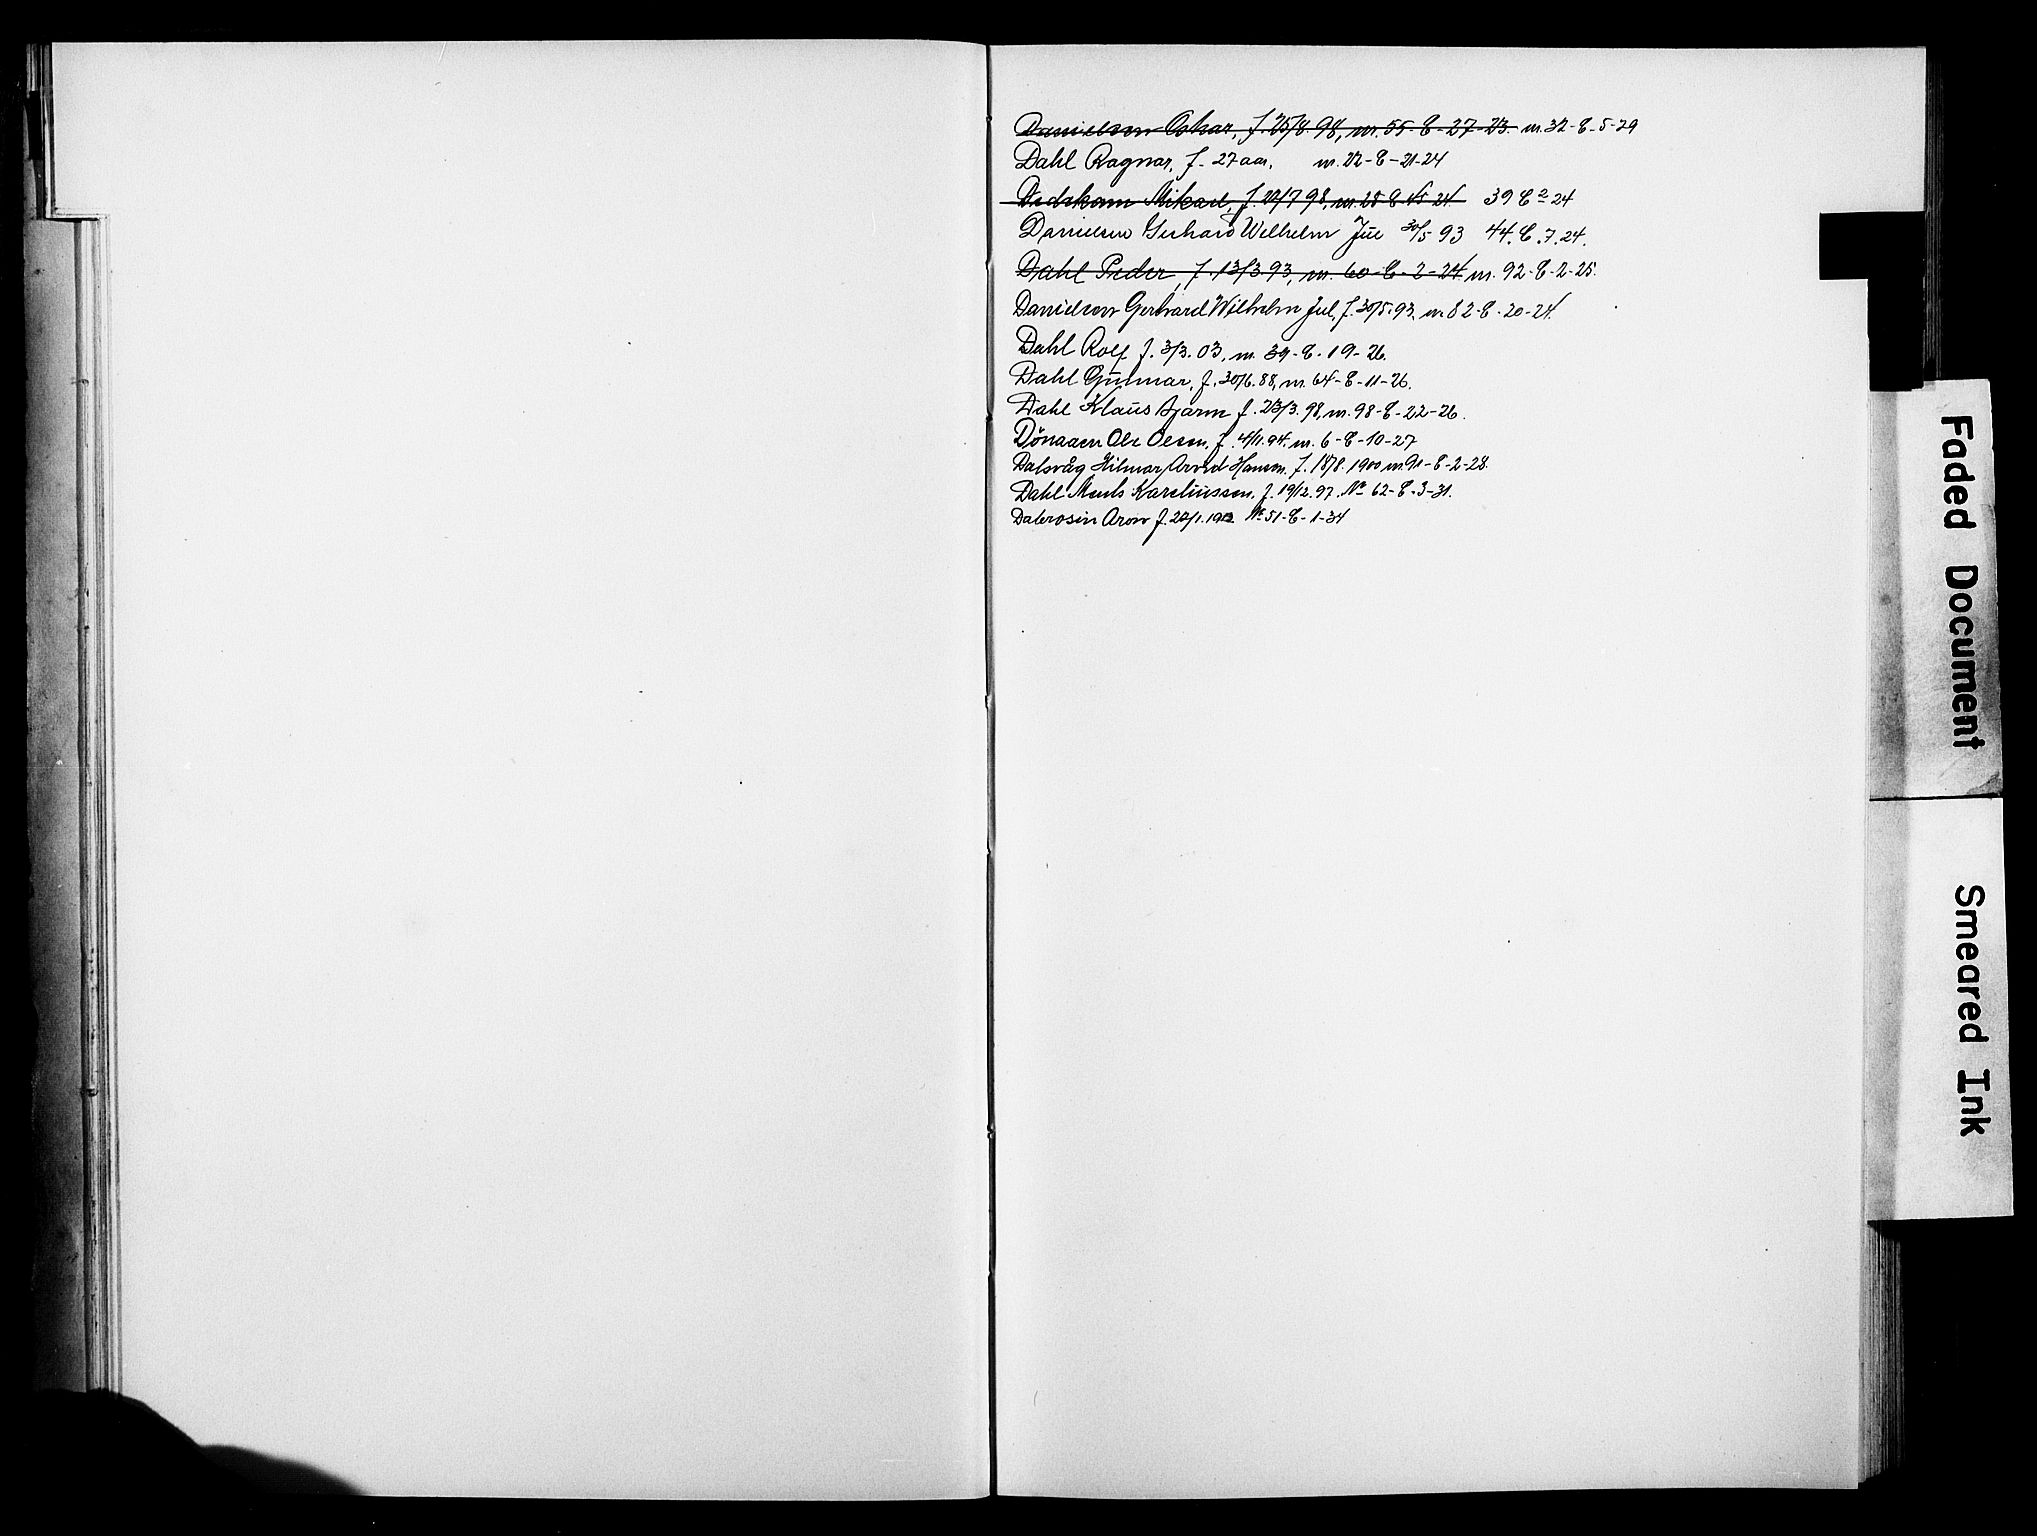 Danielsen Oskar, f. 25/8. 98, nr. 55- E- 27- 23. nr. 32- E- 5- 29
Dahl Ragnar, f- 27 aar. nr. 22- E- 21- 24
Mikael, f. 22/7 98, nr. 25 E 15 24 39 E 2 24
Danielsen Gerhard Wilhelm Jul 30/5 93 44. E. 7. 24.
Dahl Peder, f. 13/3. 93, nr. 60- E- 2- 24 nr. 92- E- 2- 25.
Danielsen Gerhard Wilhelm Jul, f. 30/5. 93. nr. 82- E- 20- 24.
Dahl Rolf f. 3/3. 03. nr. 39- E- 19- 26.
Dahl Gunnar, f. 30/6. 88, nr. 64- E- 11- 26.
Dahl Klaus Bjarm f. 23/3. 98, nr. 98- E- 22- 26.
Dönaaen Ole Olsen, f. 4/11. 94. nr. 6- E- 10- 27
Dalsvåg Hilmar Arvid Hansen. f. 18/8. 1900 nr. 91- E- 2- 28.
Dahl Kareliussen, f. 19/12. 97. No 62- E- 3- 31.
Dabrosin Aron f. 22/1. No 51- E- 1- 34
Faded Document
Smeared Ink